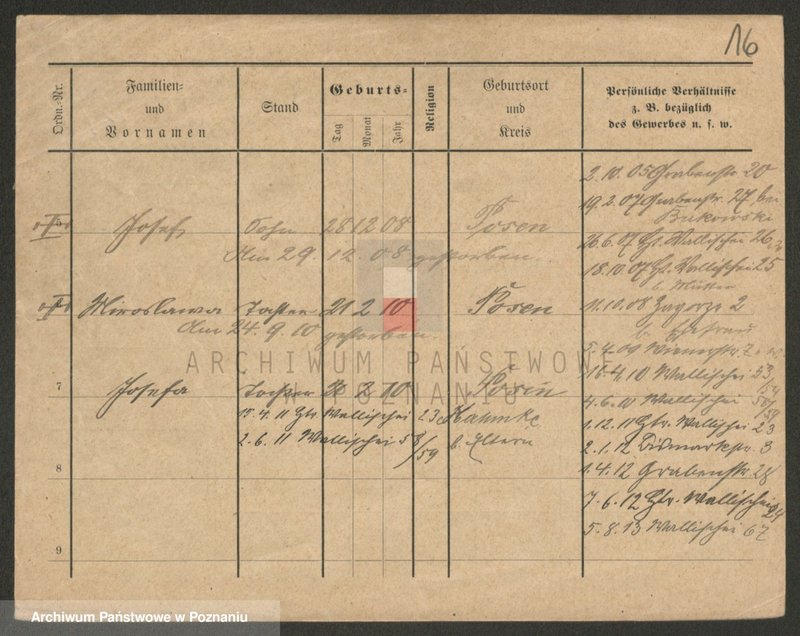 16
Ordn.-Nr.
Familien-
und
Vornamen
Stand
Geburts-
Tag
Monat
Jahr
Religion
Geburtsort
und
Kreis
Persönliche Verhältnisse
z. B. bezüglich
des Gewerbes u. s. w.
2.10.05 Grabenstr. 20
19.2.07 Grabenstr. 27 bei
Bukowski
Josef Sohn 28 12 08 Posen
26.6.07 Gr. Wallischei 26
Am 29. 12. 08 gestorben.
18.10.07 Gr. Wallischei 25
b. Mutter
Miroslawa Tochter 21 2 10 Posen
11.10.08 Zagorze 2
Am 24. 9. 10 gestorben.
b. Ehefrau
5.4.09 Wienerstr. 7
ARCHIWUM PAŃSTWOWE
W POZNANIU
7 Josefa Tochter 2 10 Posen
16.4.10 Wallischei 53
/54
15.4.11 Gr. Wallischei 23 Kahmke
4.6.10 Wallischei 58/
59
2.6.11 Wallischei 58/59 b. Eltern
1.12.11 Gr. Wallischei 23
2.1.12 Bismarckstr. 3
8
1.4.12 Grabenstr. 28
7.6.12 Gr. Wallischei
5.8.13 Wallischei 67
9
Archiwum Państwowe w Poznaniu